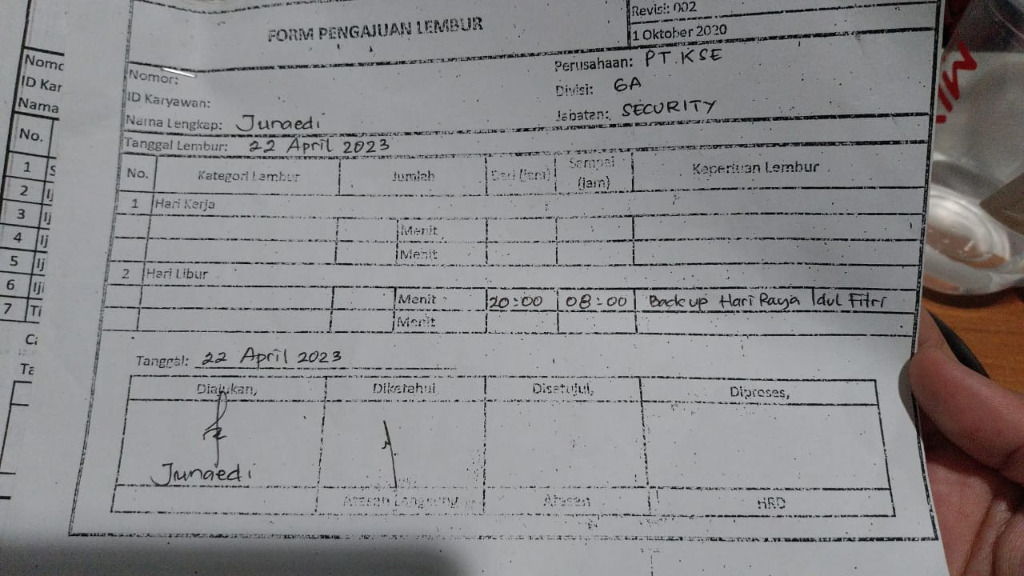 FORM PENGAJUAN LEMBUR
Revisi: 002
1 Oktober 2020
Nomor:
ID Karyawan:
Nama Lengkap: Junaedi
Perusahaan: PT. KSE
Divisi: GA
Jabatan: SECURITY
Tanggal Lembur: 22 April 2023
No. Kategori Lembur Jumlah Dari (Jam) Sampai (Jam) Keperluan Lembur
1 Hari Kerja
Menit
Menit
2 Hari Libur
Menit 20:00 08:00 Backup Hari Raya Idul Fitri
Menit
Tanggal: 22 April 2023
Diajukan, Diketahui, Disetujui, Diproses,
Junaedi
Atasan Langsung Atasan HRD
ID Kar
Nama
No.
1
2
3
4
5
6
7